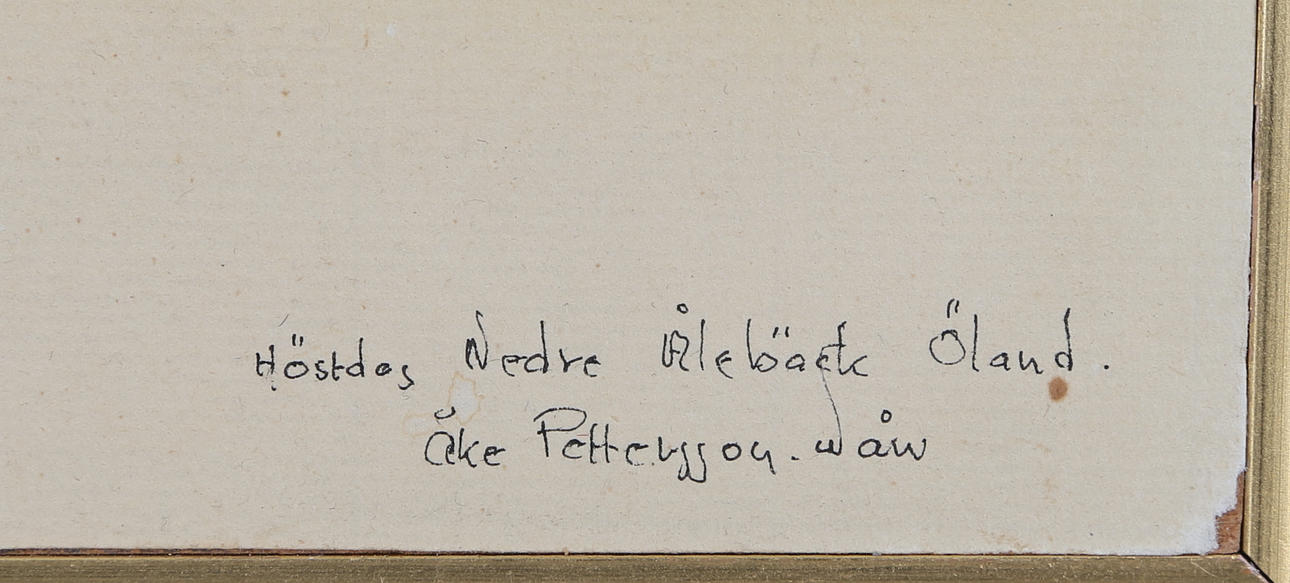 Höstdag Nedre Ålebäck Öland.
Åke Pettersson. Wåw